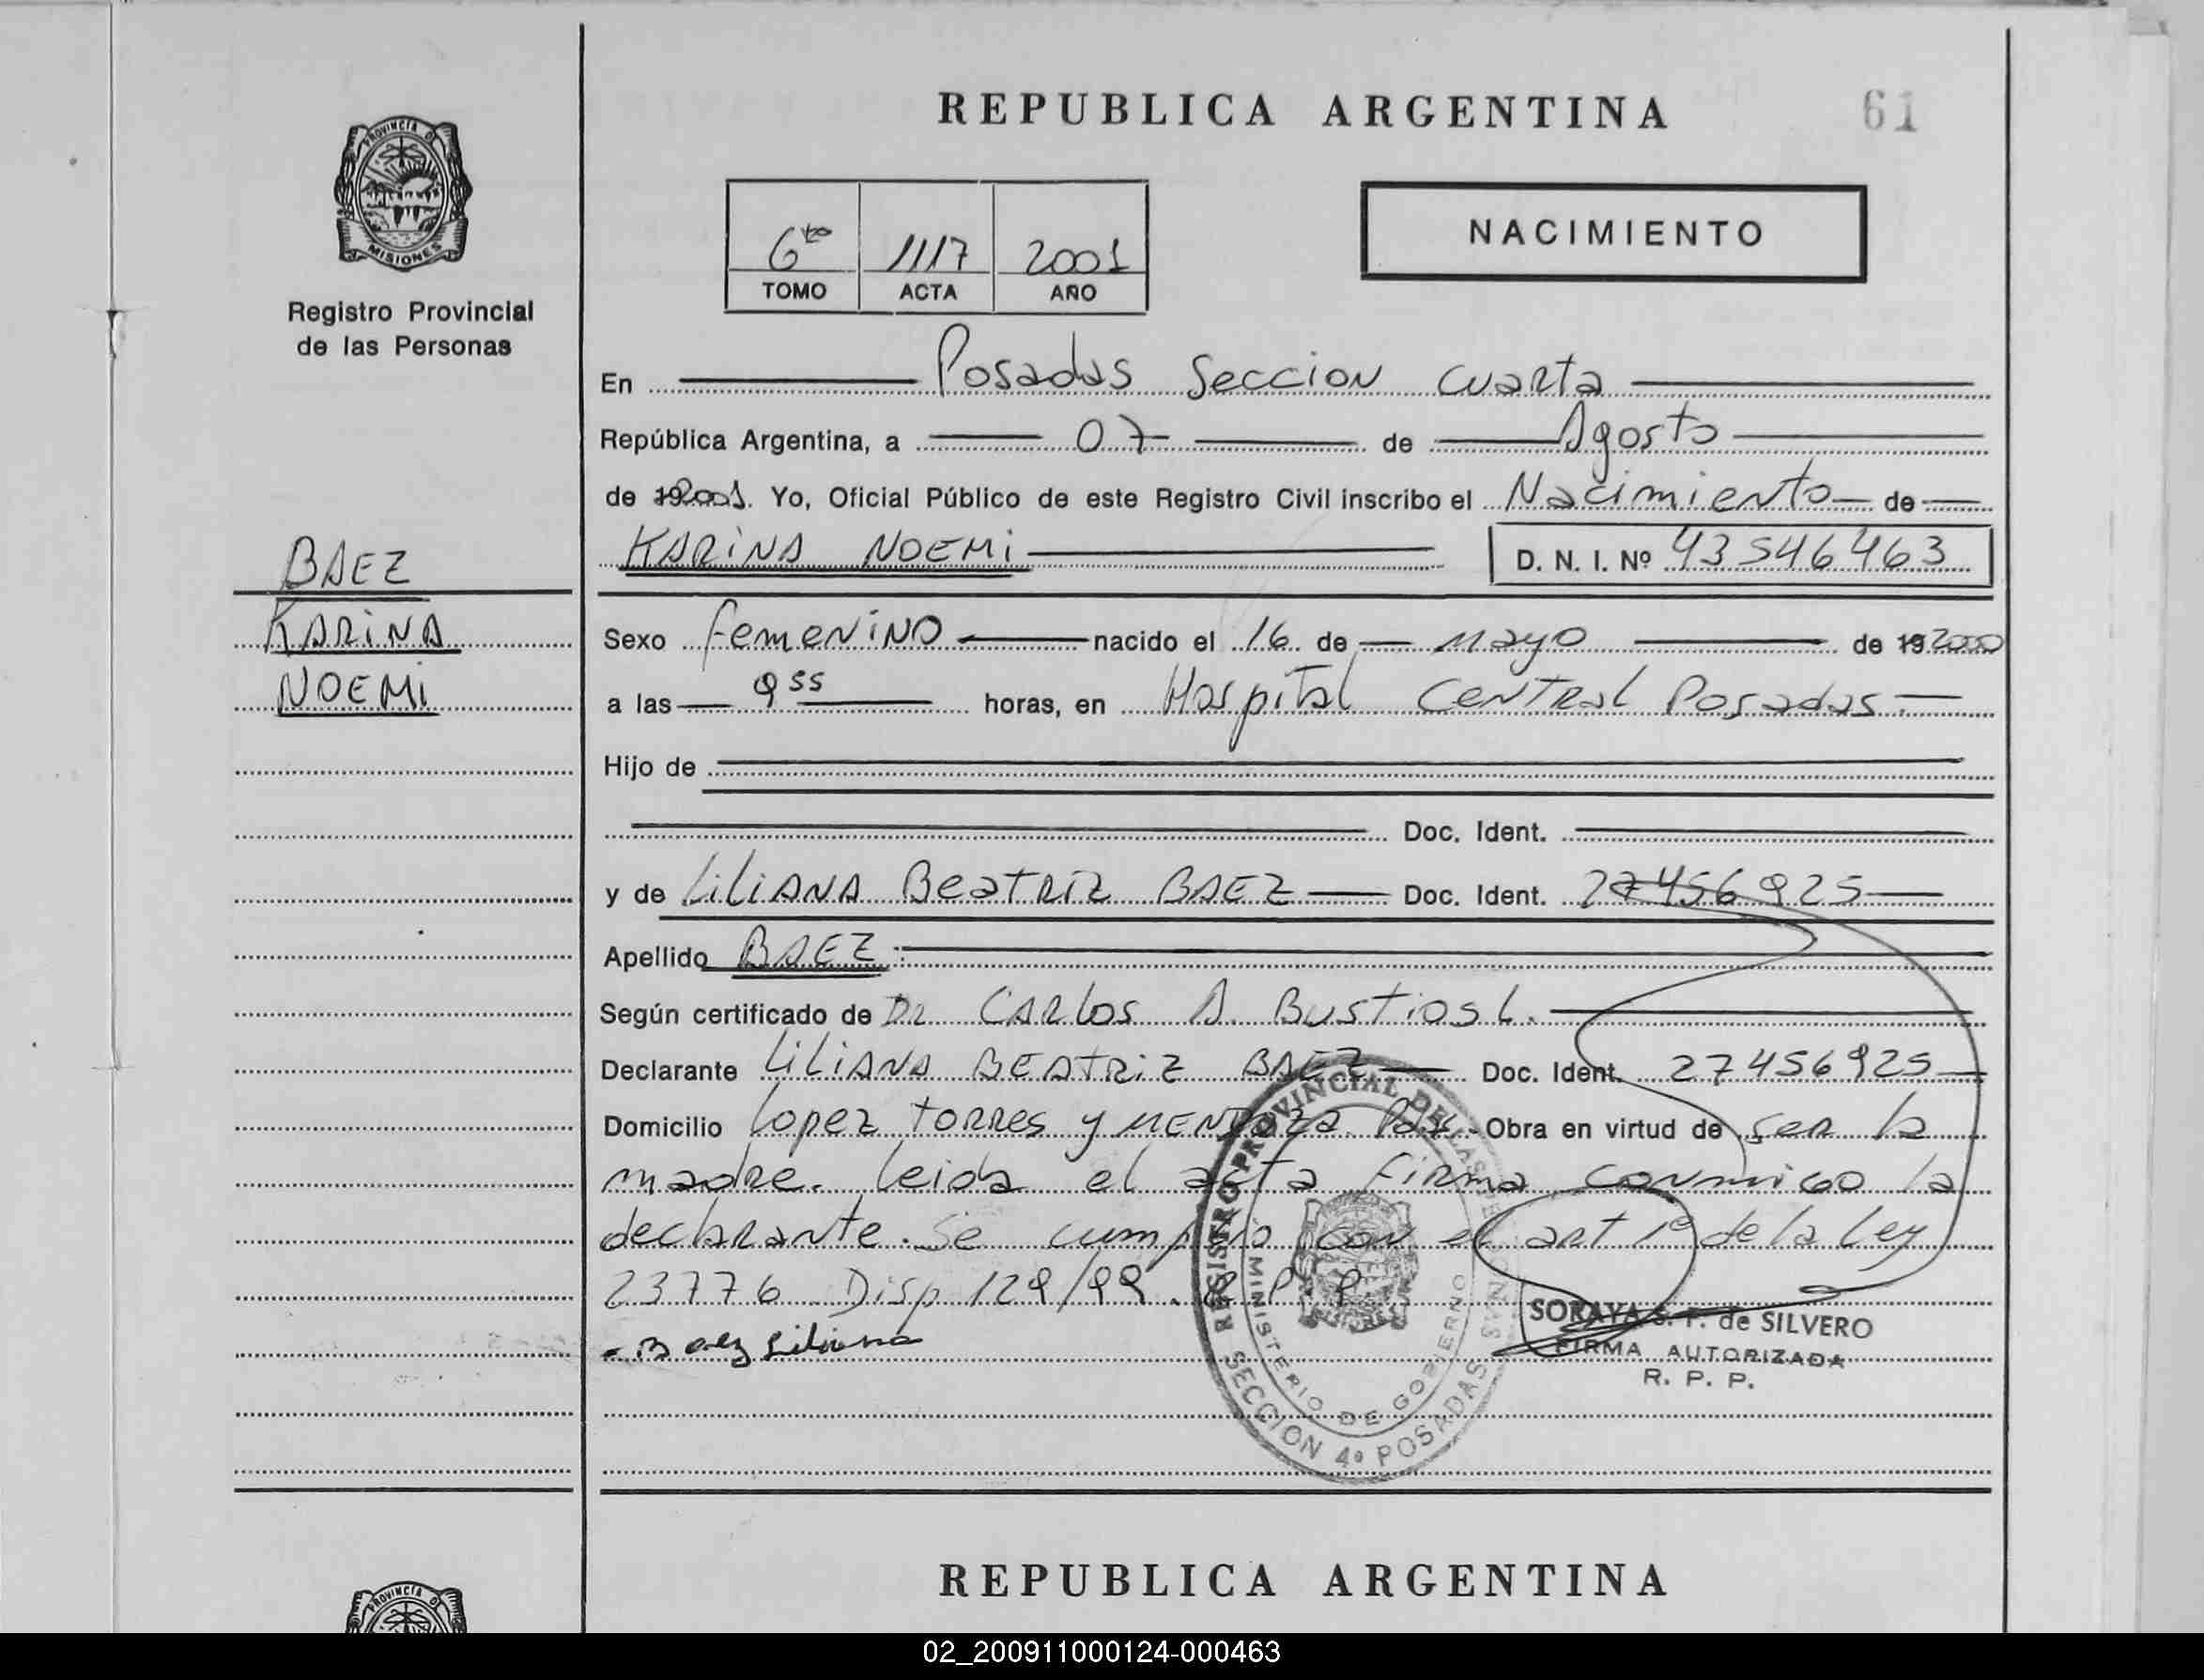 REPUBLICA ARGENTINA
61
PROVINCIA DE
MISIONES
Registro Provincial
de las Personas
6to 1117 2001
TOMO ACTA AÑO
NACIMIENTO
En Posadas Seccion Cuarta
República Argentina, a 07 de Agosto
de 192001. Yo, Oficial Público de este Registro Civil inscribo el Nacimiento de
KARINA NOEMI D. N. I. Nº 43546463
BAEZ
KARINA
NOEMI
Sexo femenino nacido el 16 de Mayo de 19 2000
a las 9 55 horas, en Hospital Central Posadas
Hijo de
Doc. Ident.
y de LILIANA BEATRIZ BAEZ Doc. Ident. 27456925
Apellido BAEZ
Según certificado de Dr CARLOS A. Bustios L.
Declarante LILIANA BEATRIZ BAEZ Doc. Ident. 27456925
Domicilio Lopez Torres y MENDOZA Pdas. Obra en virtud de ser la
madre. leida el acta firma conmigo la
declarante. Se cumplio con el art 1º de la Ley
23776 Disp 129/99. R. P. P
Baez Liliana
REGISTRO PROVINCIAL DE LAS PERSONAS
MINISTERIO DE GOBIERNO
SECCION 4º POSADAS
SORAYA S. F. de SILVERO
FIRMA AUTORIZADA
R. P. P.
REPUBLICA ARGENTINA
PROVINCIA DE
02_200911000124-000463